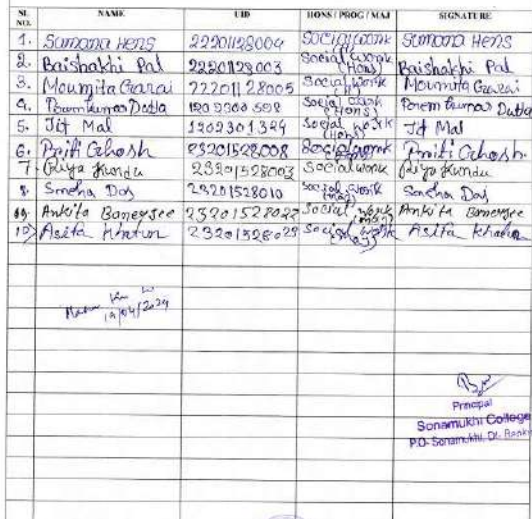 SL. NO. NAME UID HONS / PROG / MAJ SIGNATURE
1. Sumana Hens 22201128004 Social work (H) Sumana Hens
2. Baishakhi Pal 22201128003 Social work (Hons) Baishakhi Pal
3. Moumita Garai 22201128005 Social work (H) Moumita Garai
4. Datta Social work (Hons) Datta
5. Jit Mal 1202301324 Social work (Hons) Jit Mal
6. Priti Ghosh 23201528008 Social work Priti Ghosh
7. Riya Kundu 23201528003 Social work Riya Kundu
8. Sneha Das 23201528010 Social work (maj) Sneha Das
9. Ankita Banerjee 23201528022 Social work (maj) Ankita Banerjee
10) Asifa Khatun 23201528028 Social work (maj) Asifa Khatun
19/04/2024
Principal
Sonamukhi College
P.O- Sonamukhi, Dt. Bankura